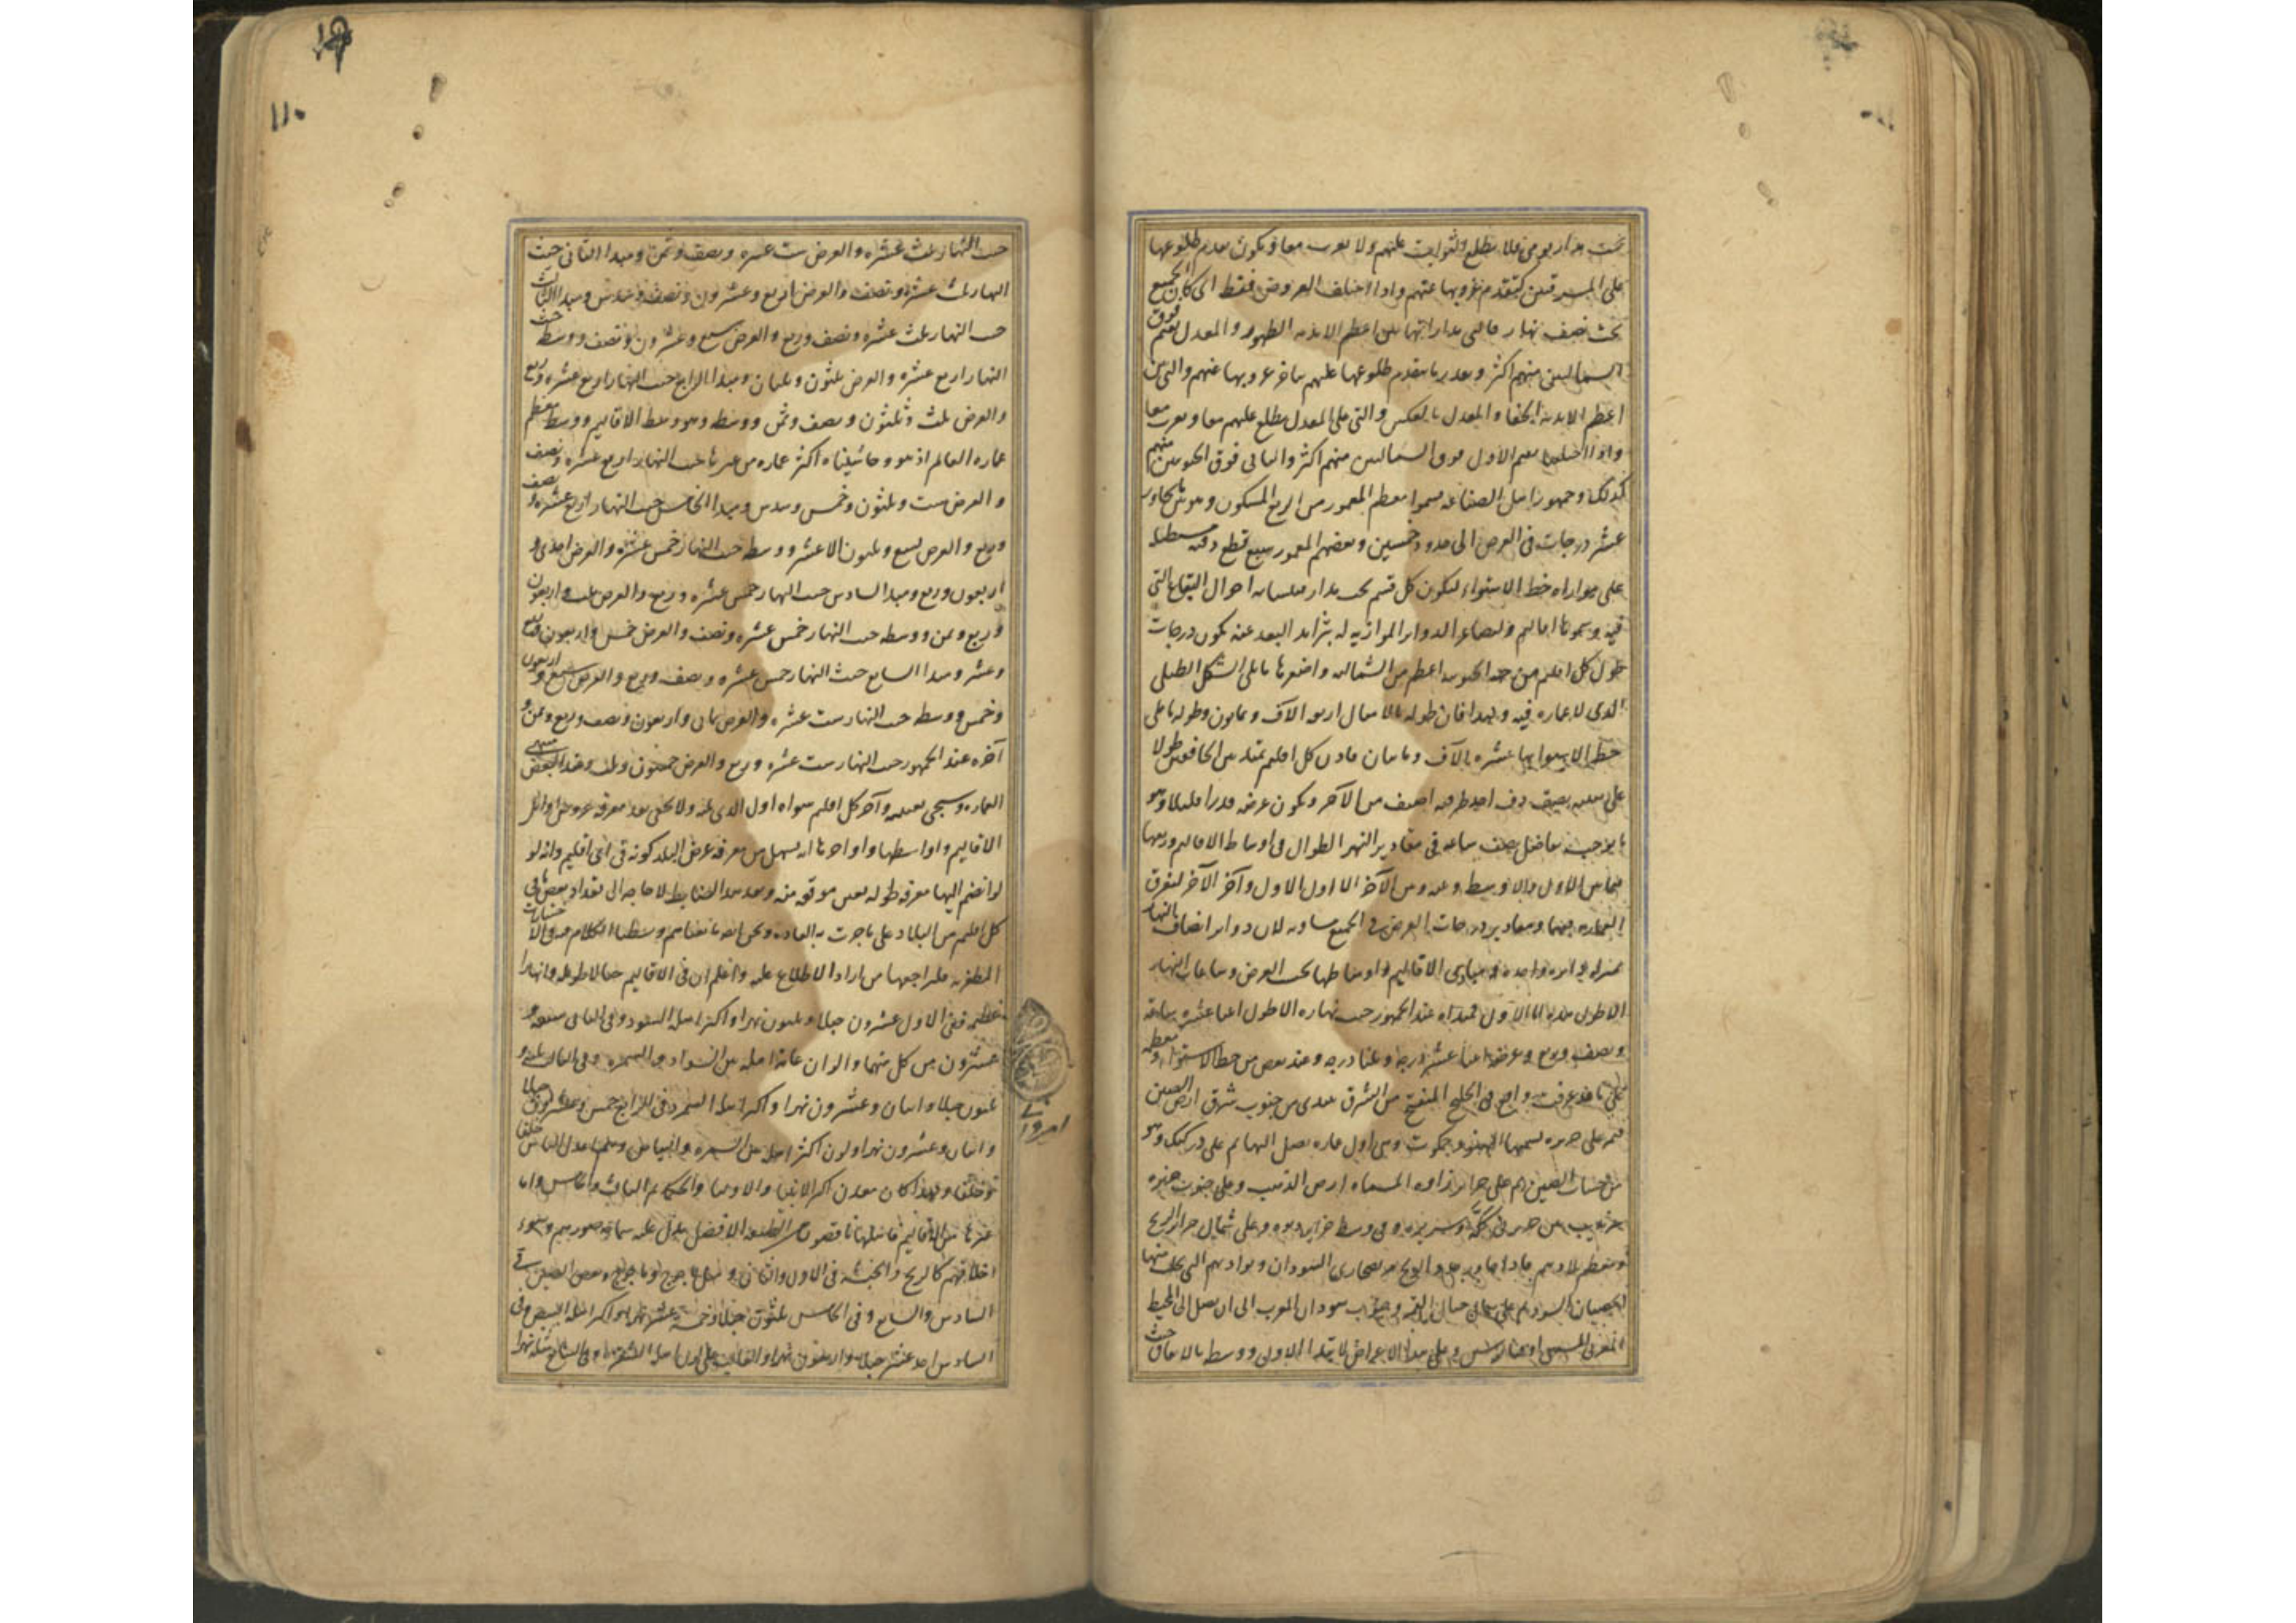 تحت مدار يومى فلا يطلع الثوابت عليهم ولا يغرب معا ويكون تقدم طلوعها
على المشرقيين كتقدم غروبها عنهم واذا اختلف العروض فقط اى كان الجميع
تحت نصف نهار فالتى مداراتها بين اعظم الابدية الظهور والمعدل يقيم فوق
الشماليين منهم اكثر وبقدر ما يتقدم طلوعها عليهم يتاخر غروبها عنهم والتى بين
اعظم الابدية الخفا والمعدل بالعكس والتى على المعدل يطلع عليهم معا ويغرب معا
واذا اختلفا يقيم الاول فوق الشماليين منهم اكثر والثانى فوق الجنوبيين منهم
كذلك وجمهور اهل الصناعة قسموا معظم المعمور من الربع المسكون وهو من
عشر درجات فى العرض الى حدود خمسين وبعضهم المعمور سبع قطع دقيقة مستطيلة
على موازاة خط الاستواء ليكون كل قسم تحت مدار متشابه احوال البقاع التى
فيه وسموها اقاليم ولتصاغر الدواير الموازية له بتزايد البعد عنه يكون درجات
طول كل اقليم من جهة الجنوب اعظم من الشمالية واصغرها ما يلى الشكل الطبلى
الذى لا عمارة فيه ولهذا فان طوله بالاميال اربعة الاف وثمانون وطول ما على
خط الاستوا بها عشرة الآف ومايتان فاذن كل اقليم يمتد بين الخافقين طولا
على بسيط دف احد طرفيه اضيق من الآخر ويكون عرضه قدرا قليلا وهو
ما يوجب تفاضل نصف ساعة فى مقادير النهر الطوال فى اوساط الاقاليم وربعها
فيما بين الاول والاوسط وبينه وبين الآخر الا اول الاول وآخر الآخر لتفرق
العمارة فيهما ومقادير درجات العرض فى الجميع متساوية لان دواير انصاف النهار
بمنزلة دايرة واحدة ومبادى الاقاليم واوساطها بحسب العرض وساعات النهار
الاطول هذه اما الاول فمبداه عند الجمهور حيث نهاره الاطول اثنا عشرة ساعة
ونصف وربع وعرضه اثنا عشر درجة وثلثا درجة وعند بعض من خط الاستواء ومعظمه
على ما قد عرفت واقع فى الخليج المنفتح من الشرق يبتدى من جنوب شرق ارض الصين
فيمر على جزيرة يسميها الهنود جمكوت وهى اول عمارة يصل اليها ثم على دركنك وهو
من حسات الصين ثم على جزاير زاوه المسماه ارض الذهب وعلى جنوب جزيره
سرنديب بين جزيرتى ككه وسريره وفى وسط جزاير ديوه وعلى شمال جزاير الزنج
ومعظم بلادهم ثم على صحارى السودان وبواديهم التى يجلب منها
الخصيان السود ثم على شمال جبال القمر وجنوب سودان المغرب الى ان يصل الى المحيط
المغربى المسمى اوقيانوس وعلى هذا الاعراض لا يبتدا الاولى ووسطه بالاتفاق حيث
حيث النهار ثلث عشرة والعرض ست عشرة ونصف وثمن ومبدا الثانى حيث
النهار ثلث عشرة ونصف والعرض اربع وعشرون ونصف وسدس ومبدا الثالث
حيث النهار ثلث عشرة ونصف وربع والعرض سبع وعشرون ونصف ووسطه حيث
النهار اربع عشرة والعرض ثلثون وثلثان ومبدا الرابع حيث النهار اربع عشرة وربع
والعرض ثلث وثلثون ونصف وثمن ووسطه وهو وسط الاقاليم ووسط معظم
عمارة العالم اذ هو وحاشيتاه اكثر عمارة من غيرها حيث النهار اربع عشرة ونصف
والعرض ست وثلثون وخمس وسدس ومبدا الخامس حيث النهار اربع عشرة ونصف
وربع والعرض تسع وثلثون الا عشر ووسطه حيث النهار خمس عشرة والعرض احدى و
اربعون وربع ومبدا السادس حيث النهار خمس عشرة وربع والعرض ثلث واربعون
وربع وثمن ووسطه حيث النهار خمس عشرة ونصف والعرض خمس واربعون وربع
وعشر ومبدا السابع حيث النهار خمس عشرة ونصف وربع والعرض سبع واربعون
وخمس ووسطه حيث النهار ست عشرة والعرض ثمانى واربعون ونصف وربع وثمن و
آخره عند الجمهور حيث النهار ست عشرة وربع والعرض خمسون وثلث وعند البعض منتهى
العمارة وسيجى تعيينه وآخر كل اقليم سواه اول الذى يليه ولا يخفى بعد معرفة عروض اوائل
الاقاليم واواسطها واواخرها انه يسهل من معرفة عرض البلد كونه فى اى اقليم وانه لو
لو انضم اليها معرفة طوله تعين موقعه منه وبعد هذا الضابط لا حاجة الى تعداد بعض ما فى
كل اقليم من البلاد على ما جرت به العادة ونحن ايضا تابعناهم وبسطنا الكلام فيه فى الاختيارات
المظفرية فليراجعها من اراد الاطلاع عليه واعلم ان فى الاقاليم جبالا طويلة وانهارا
عظيمة ففى الاول عشرون جبلا وثلثون نهرا واكثر اهله السود وفى الثانى سبعة و
عشرون من كل منهما والوان عامة اهله بين السواد والسمرة وفى الثالث ثلثة و
ثلثون جبلا واثنان وعشرون نهرا واكثر اهله السمر وفى الرابع خمس وعشرون جبلا
واثنان وعشرون نهرا ولون اكثر اهله بين السمرة والبياض وهم اعدل الناس خلقا
وخلقا ولهذا كان معدن اكثر الانبيا والاوليا والحكما ثم الثالث والخامس واما
غيرها من الاقاليم فاهلها ناقصون عن الطبيعة الافضل يدل عليه سماجة صورهم وسوء
اخلاقهم كالزنج والحبشة فى الاول والثانى وكياجوج وماجوج وبعض الصين فى
السادس والسابع وفى الخامس ثلثون جبلا وخمسة عشر نهرا واكثر اهله البيض وفى
السادس احد عشر جبلا واربعون نهرا والغالب على لون اهله الشقرة وفى السابع مثله نهرا
١١٠